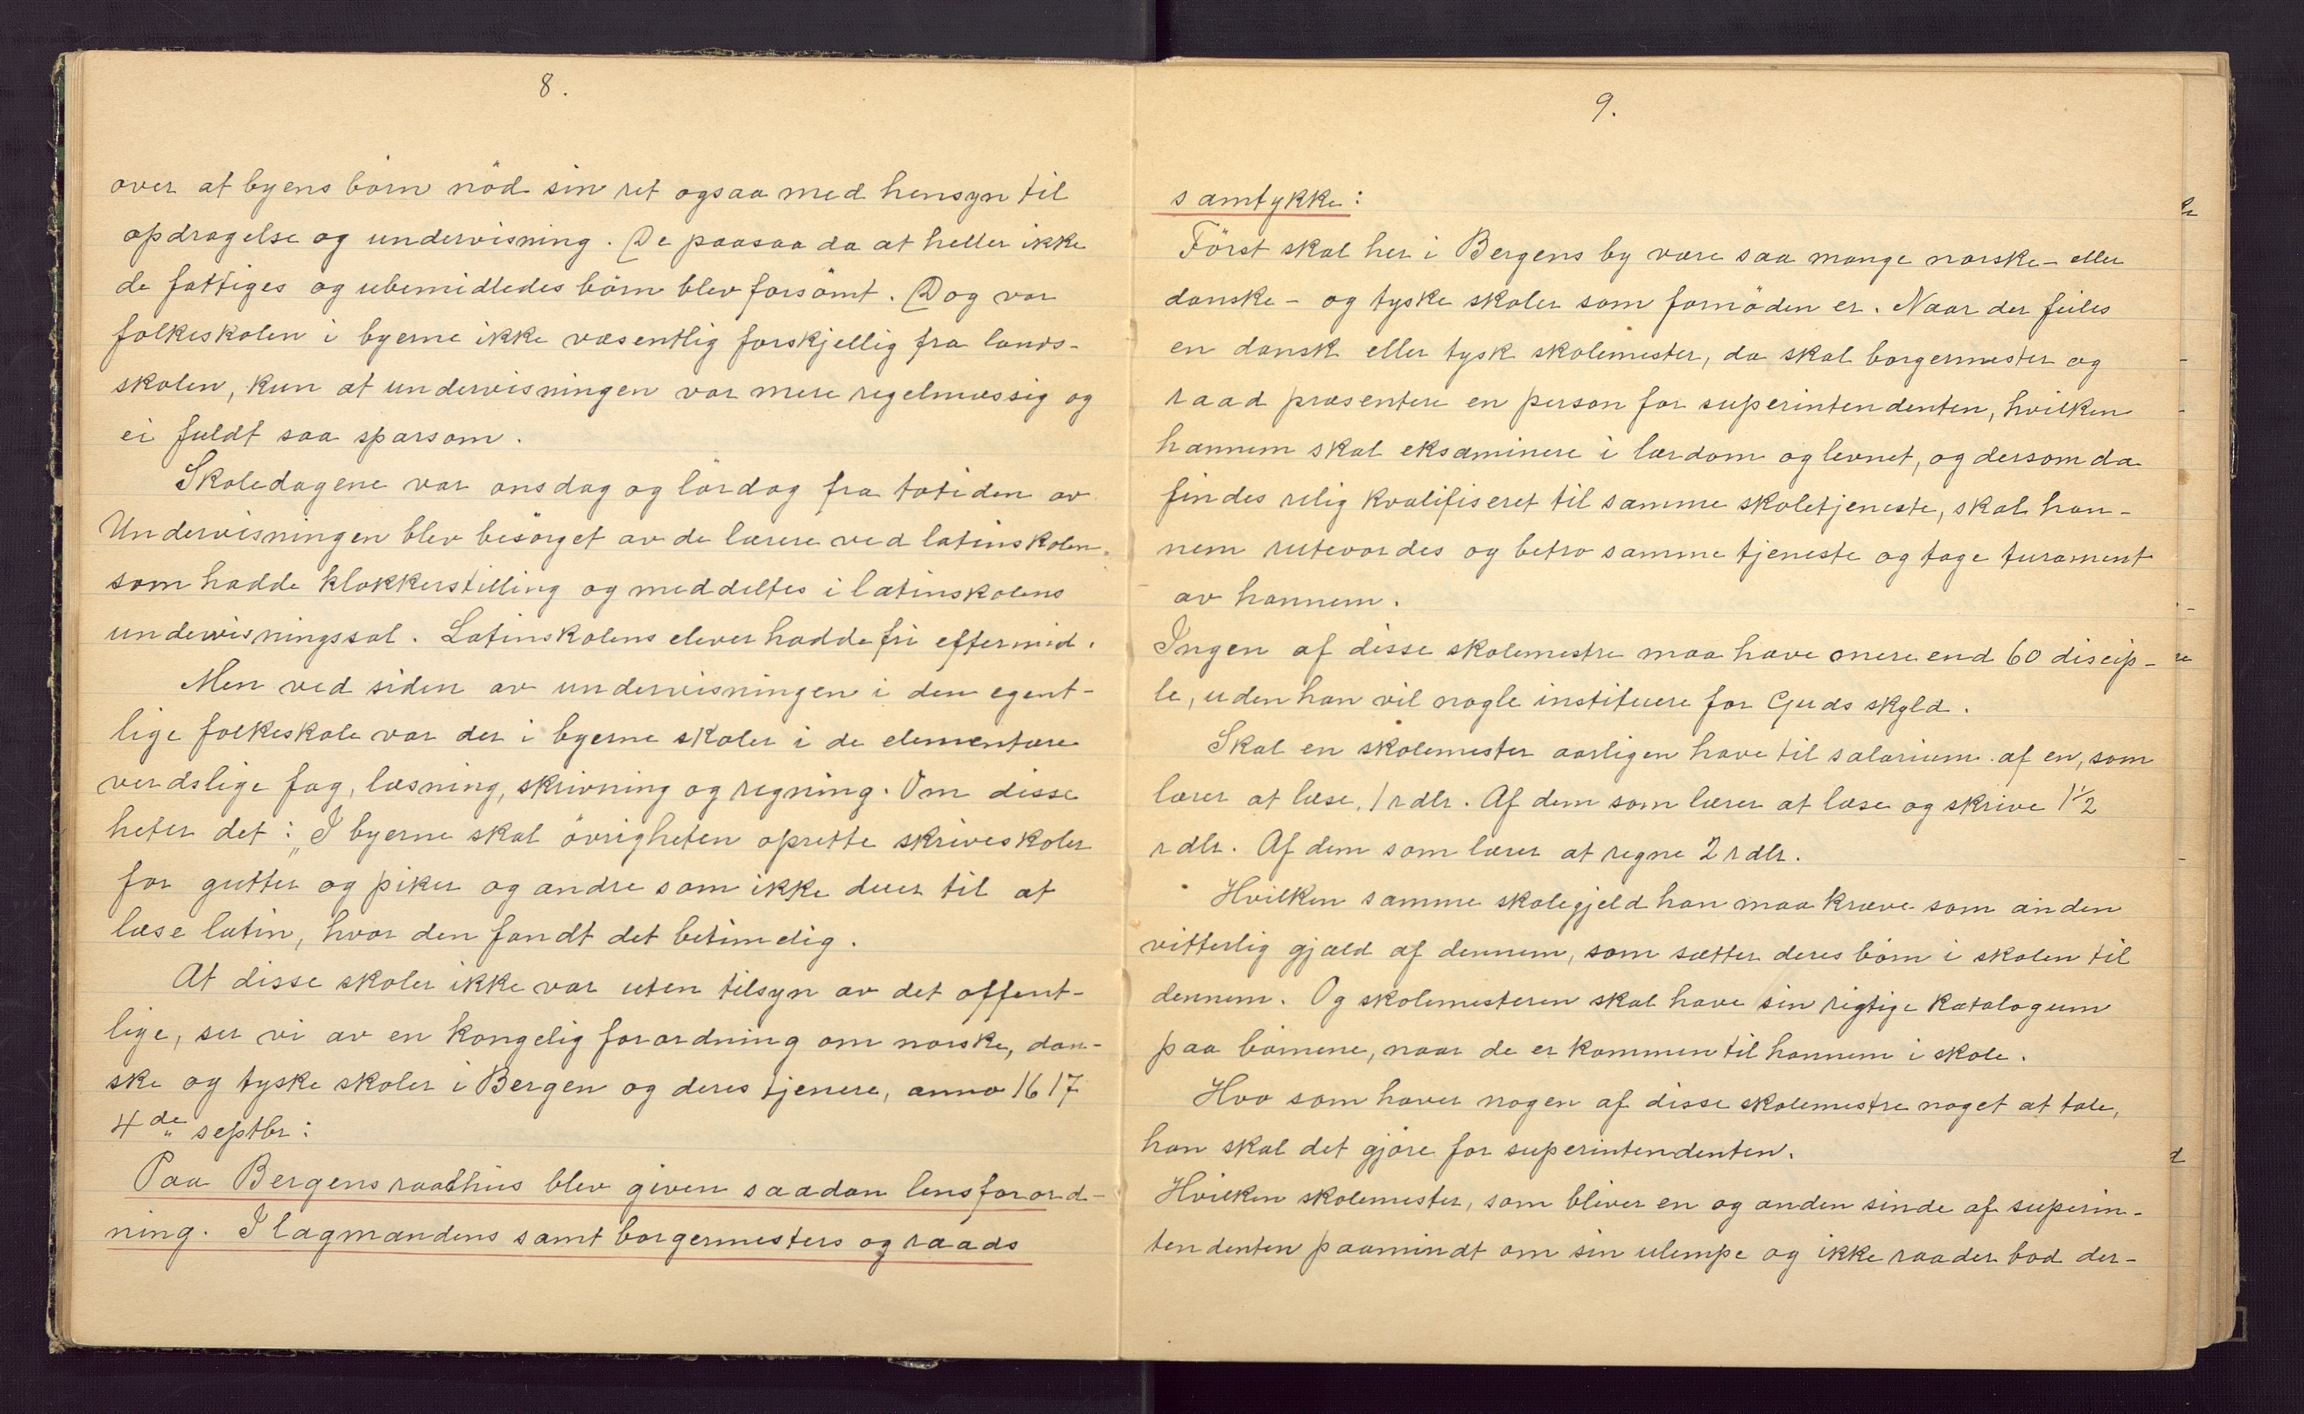 8.
over at byens börn nöd sin ret ogsaa med hensyn til
opdragelse og undervisning. De paasaa da at heller ikke
de fattiges og ubemidledes börn blev forsömt. Dog var
folkeskolen i byerne ikke væsentlig forskjellig fra lands-
skolen, kun at undervisningen var mere regelmæssig og
ei fuldt saa sparsom.
Skoledagene var onsdag og lördag fra totiden av.
Undervisningen blev besörget av de lærere ved latinskolen
som hadde klokkerstilling og meddeltes i latinskolens
undervisningssal. Latinskolens elever hadde fri eftermid.
Men ved siden av undervisningen i den egent-
lige folkeskole var der i byerne skoler i de elementære
verdslige fag, læsning, skrivning og regning. Om disse
heter det: „I byerne skal övrigheten oprette skriveskoler
for gutter og piker og andre som ikke duer til at
læse latin, hvor den fandt det betimelig.
At disse skoler ikke var uten tilsyn av det offent-
lige, ser vi av en kongelig forordning om norske, dan-
ske og tyske skoler i Bergen og deres tjenere, anno 1617
4de septbr:
Paa Bergens raadhus blev given saadan lensforord-
ning. I lagmandens samt borgermesters og raads
9.
samtykke:
Först skal her i Bergens by være saa mange norske- eller
danske- og tyske skoler som fornöden er. Naar der feiles
en dansk eller tysk skolemester, da skal borgermester og
raad præsentere en person for superintendenten, hvilken
hannem skal eksaminere i lærdom og levnet, og dersom da
findes relig kvalifiseret til samme skoletjeneste, skal han-
nem rutevordes og betro samme tjeneste og tage turament
av hannem.
Ingen af disse skolemestre maa have mere end 60 discip-
le, uden han vil nogle instituere for Guds skyld.
Skal en skolemester aarligen have til salarium af en, som
lærer at læse, 1 rdlr. Af dem som lærer at læse og skrive 1½
rdlr. Af dem som lærer at regne 2 rdlr.
Hvilken samme skolegjeld han maa kræve som anden
vitterlig gjæld af dennem, som sætter deres börn i skolen til
dennem. Og skolemesteren skal have sin rigtige katalogum
paa börnene, naar de er kommen til hannem i skole.
Hvo som haver nogen af disse skolemestre noget at tale,
han skal det gjöre for superintendenten.
Hvilken skolemester, som bliver en og anden sinde af superin-
tendenten paamindt om sin ulempe og ikke raader bod der-